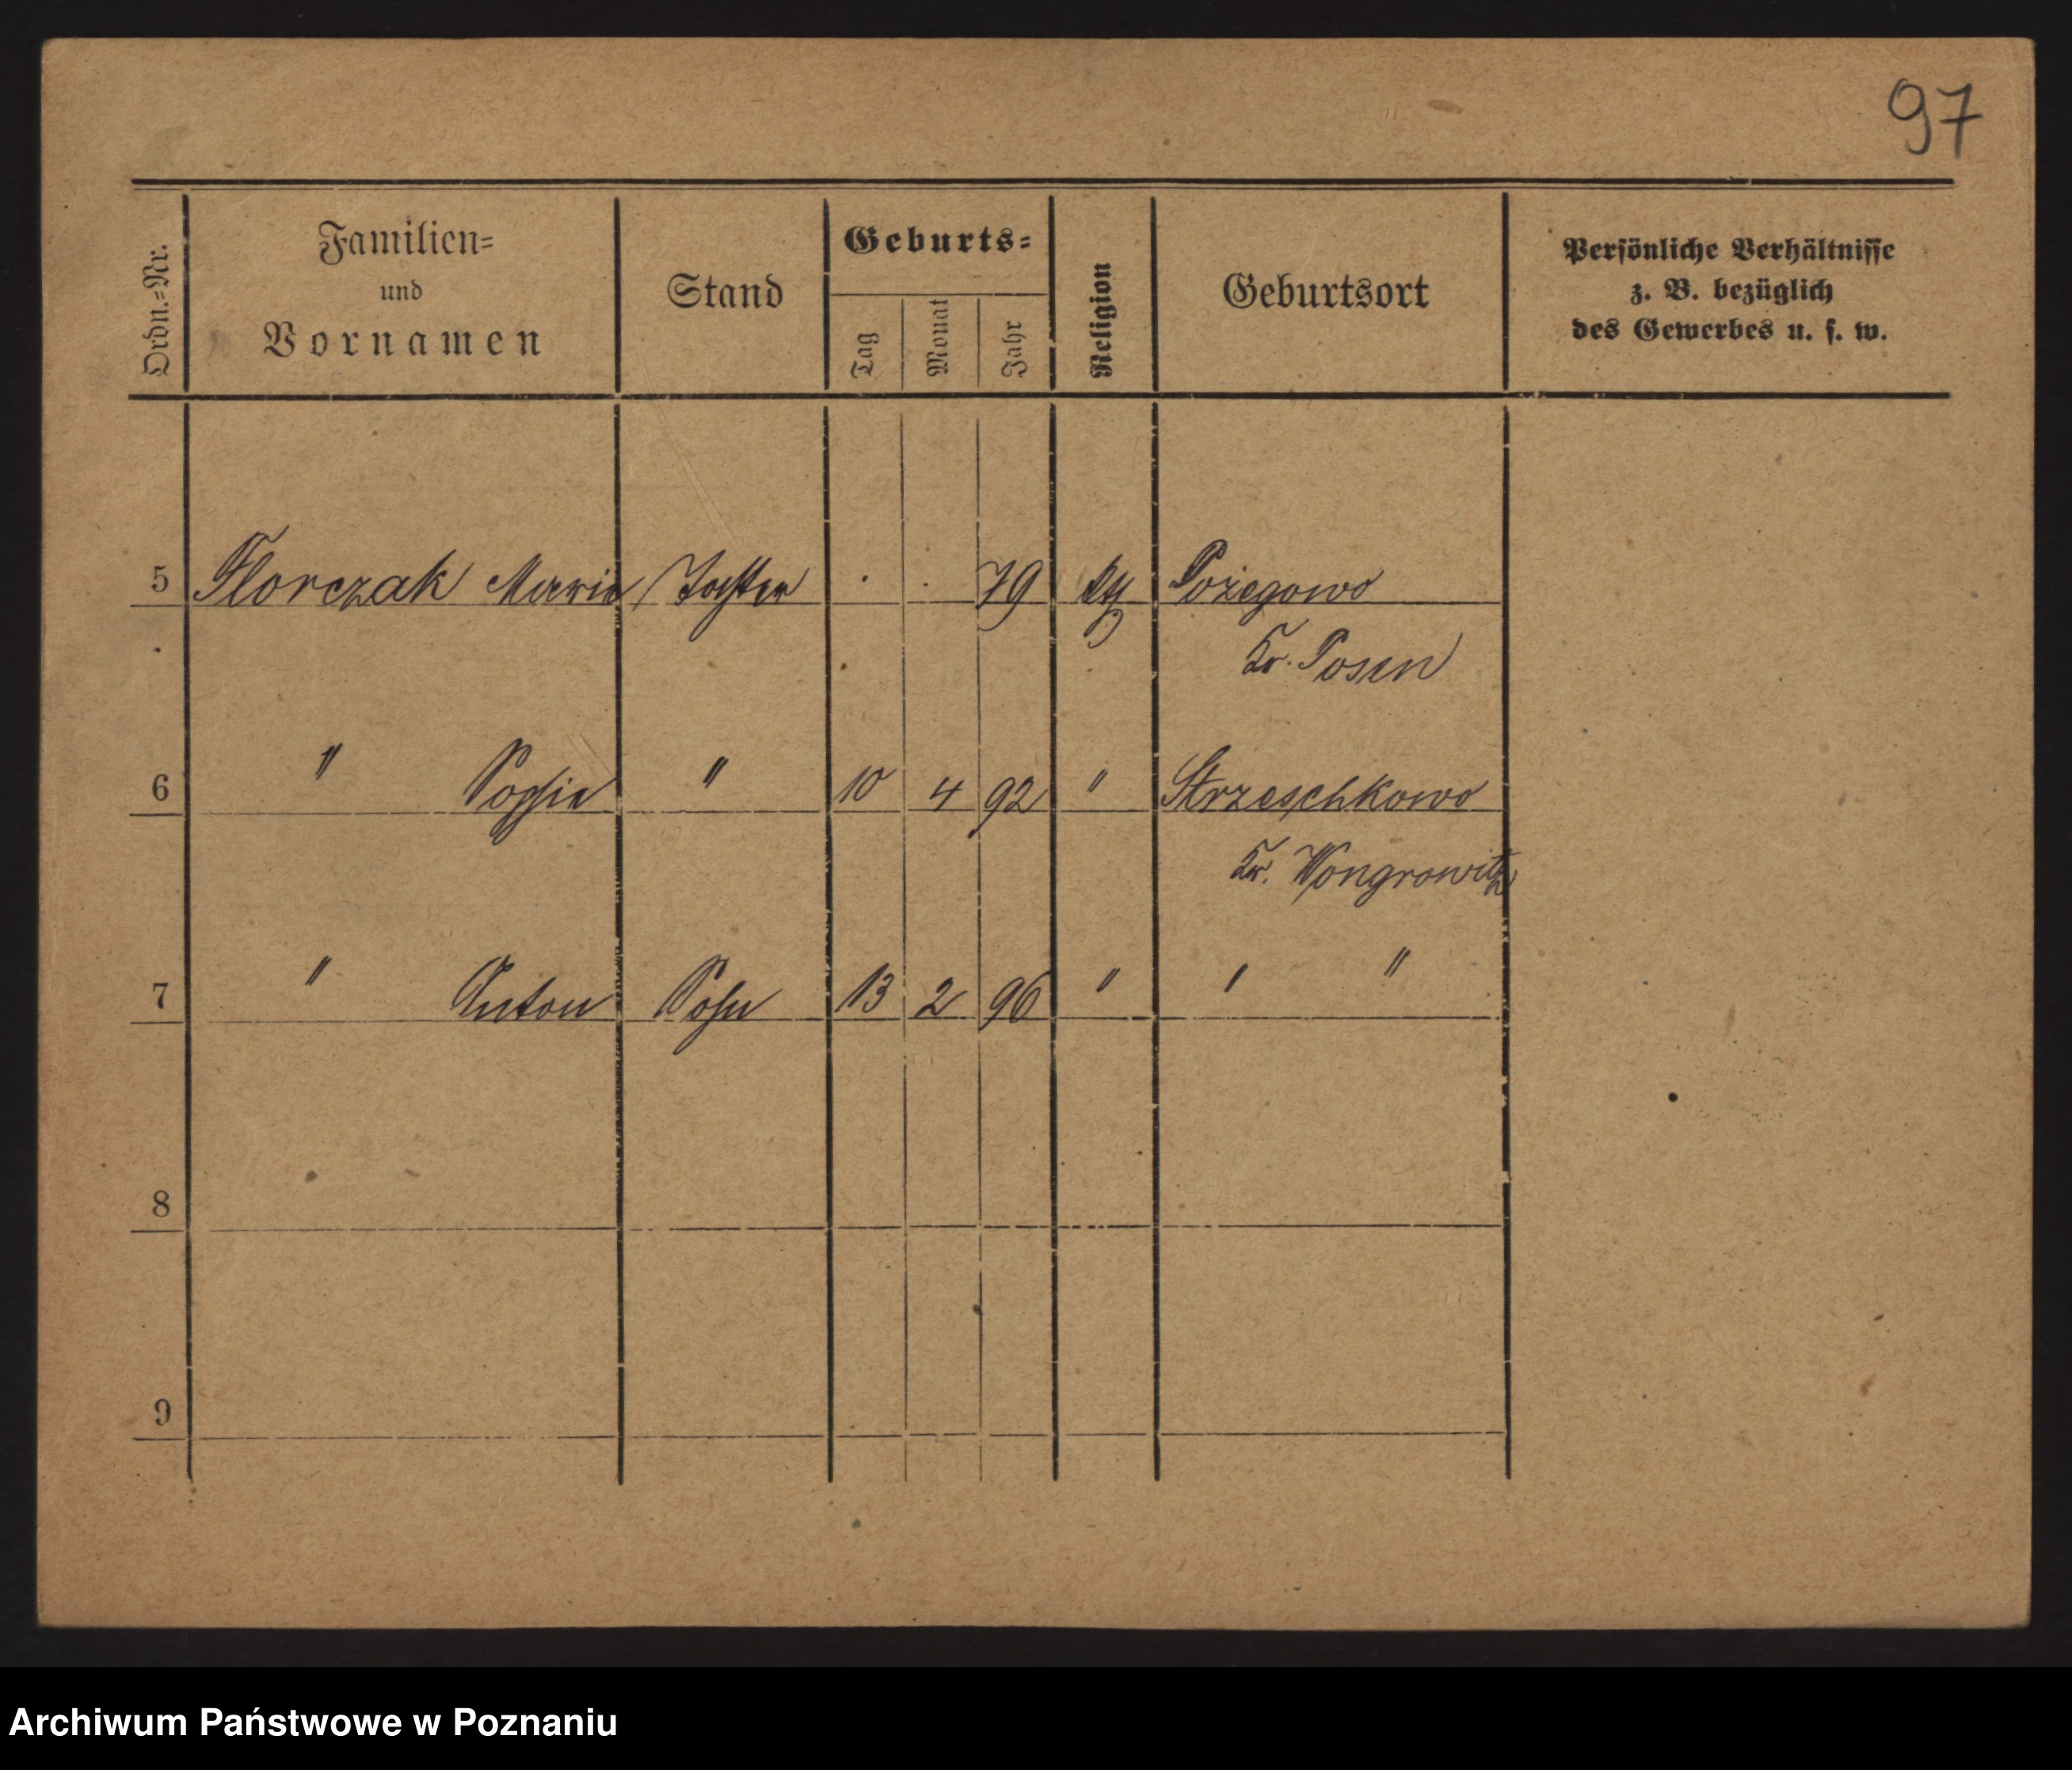 97
Ordn.-Nr.
Familien-
und
Vornamen
Stand
Geburts-
Tag
Monat
Jahr
Religion
Geburtsort
Persönliche Verhältnisse
z. B. bezüglich
des Gewerbes u. s. w.
5 Florczak Maria Tochter . . 79 kth Pożegowo
Kr. Posen
6 " Sophie " 10 4 92 " Strzeschkowo
Kr. Wongrowitz
7 " Anton Sohn 13 2 96 " " "
8
9
Archiwum Państwowe w Poznaniu